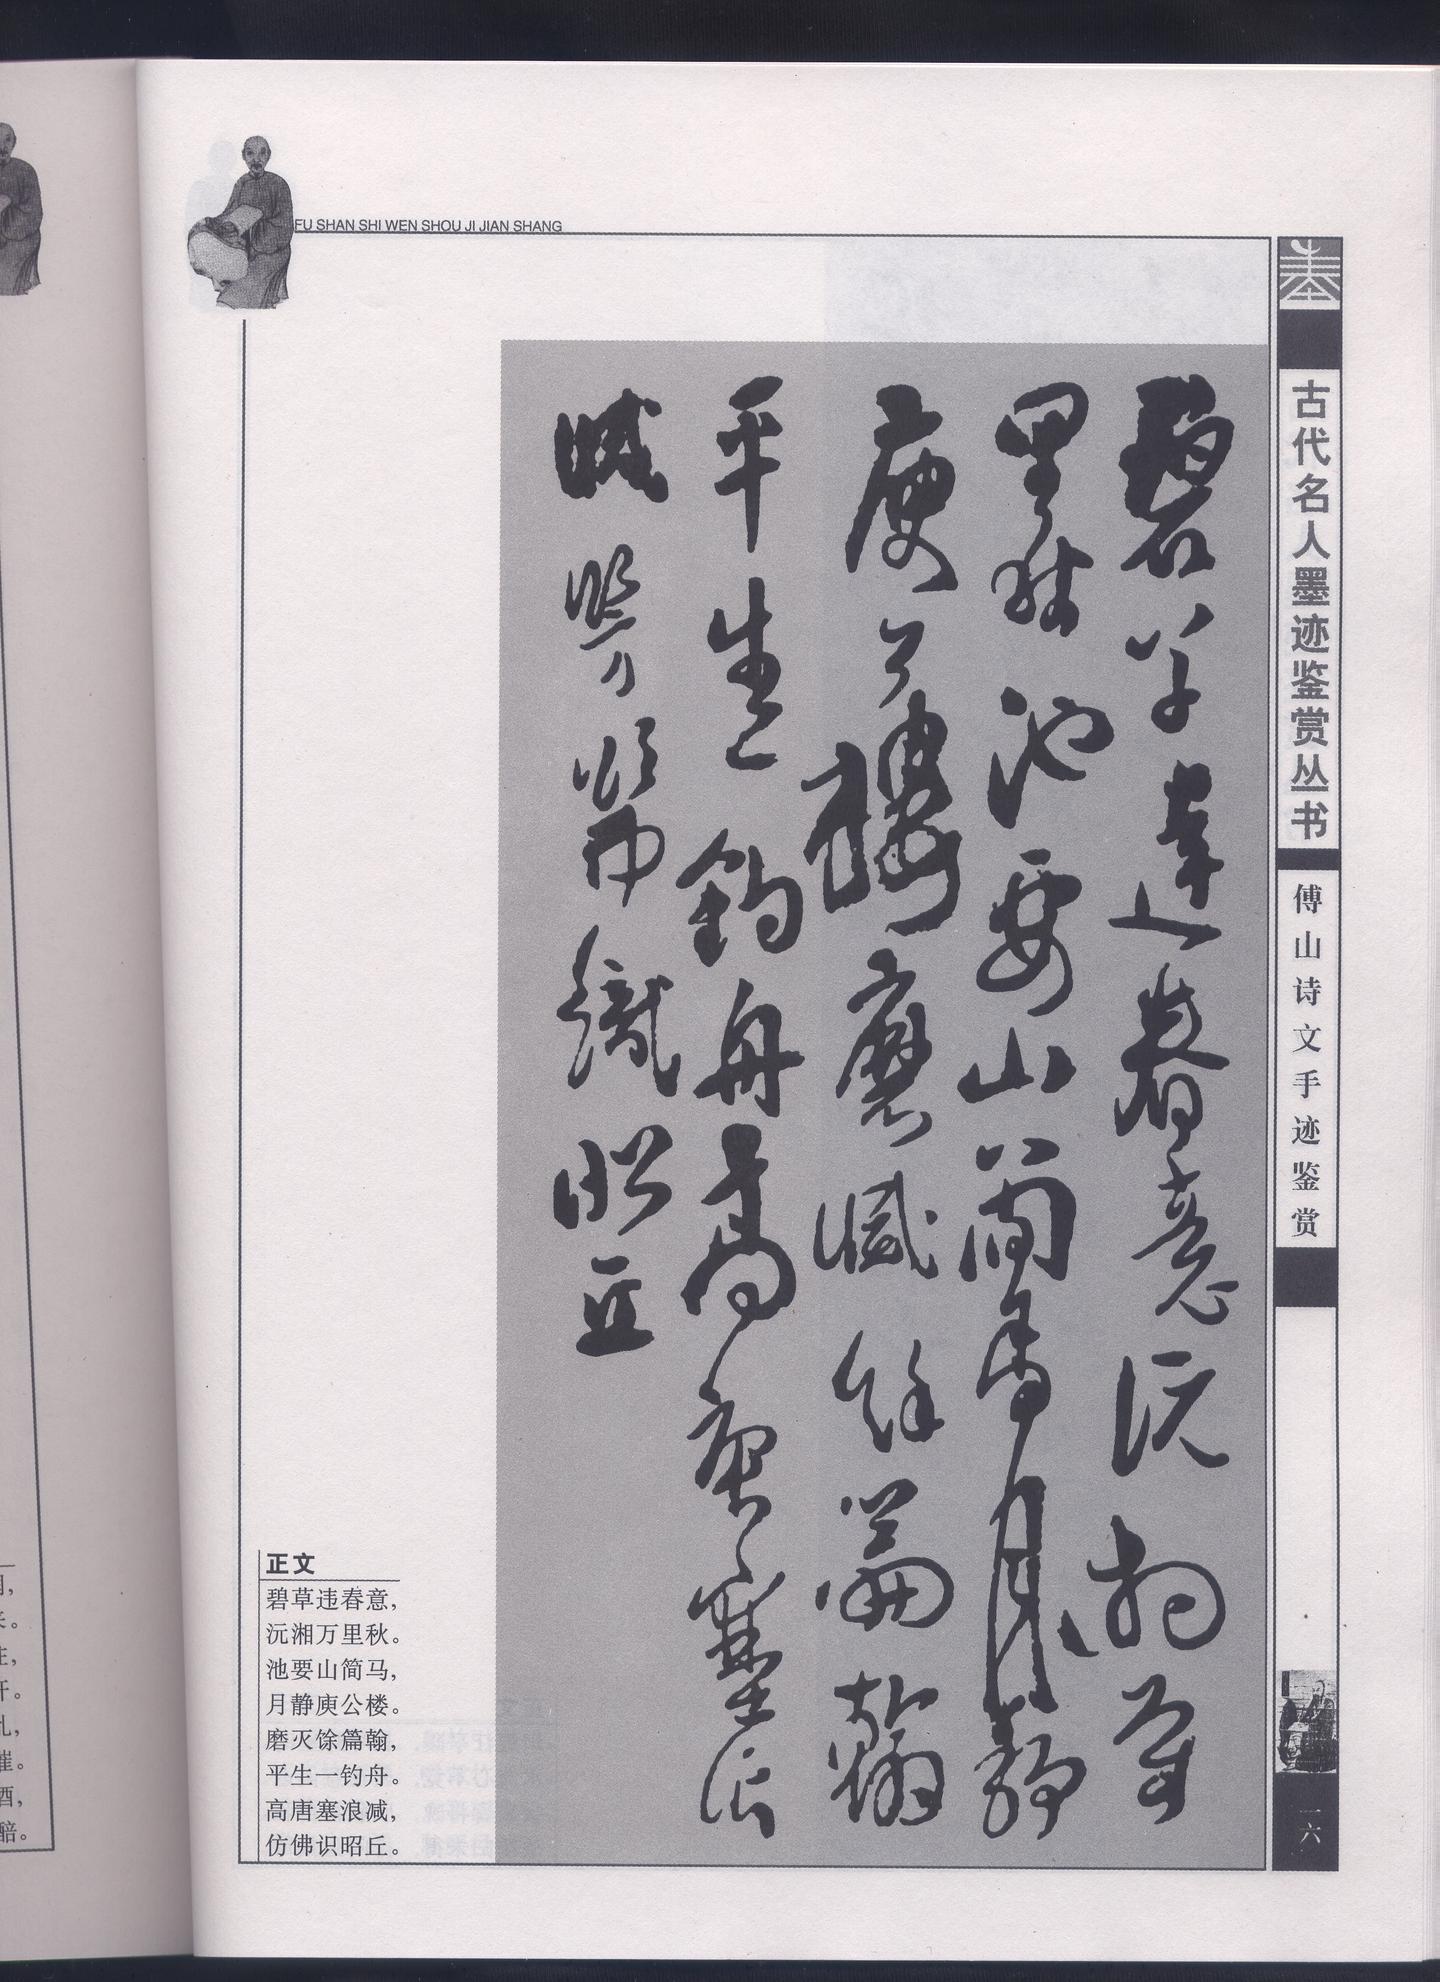 FU SHAN SHI WEN SHOU JI JIAN SHANG
古代名人墨迹鉴赏丛书
傅山诗文手迹鉴赏
一六
碧草違春意沅湘万
里秋池要山簡馬月靜
庾公樓磨滅餘篇翰
平生一釣舟高唐塞浪
減髣髴識昭丘
正文
碧草违春意，
沅湘万里秋。
池要山简马，
月静庾公楼。
磨灭馀篇翰，
平生一钓舟。
高唐塞浪减，
仿佛识昭丘。